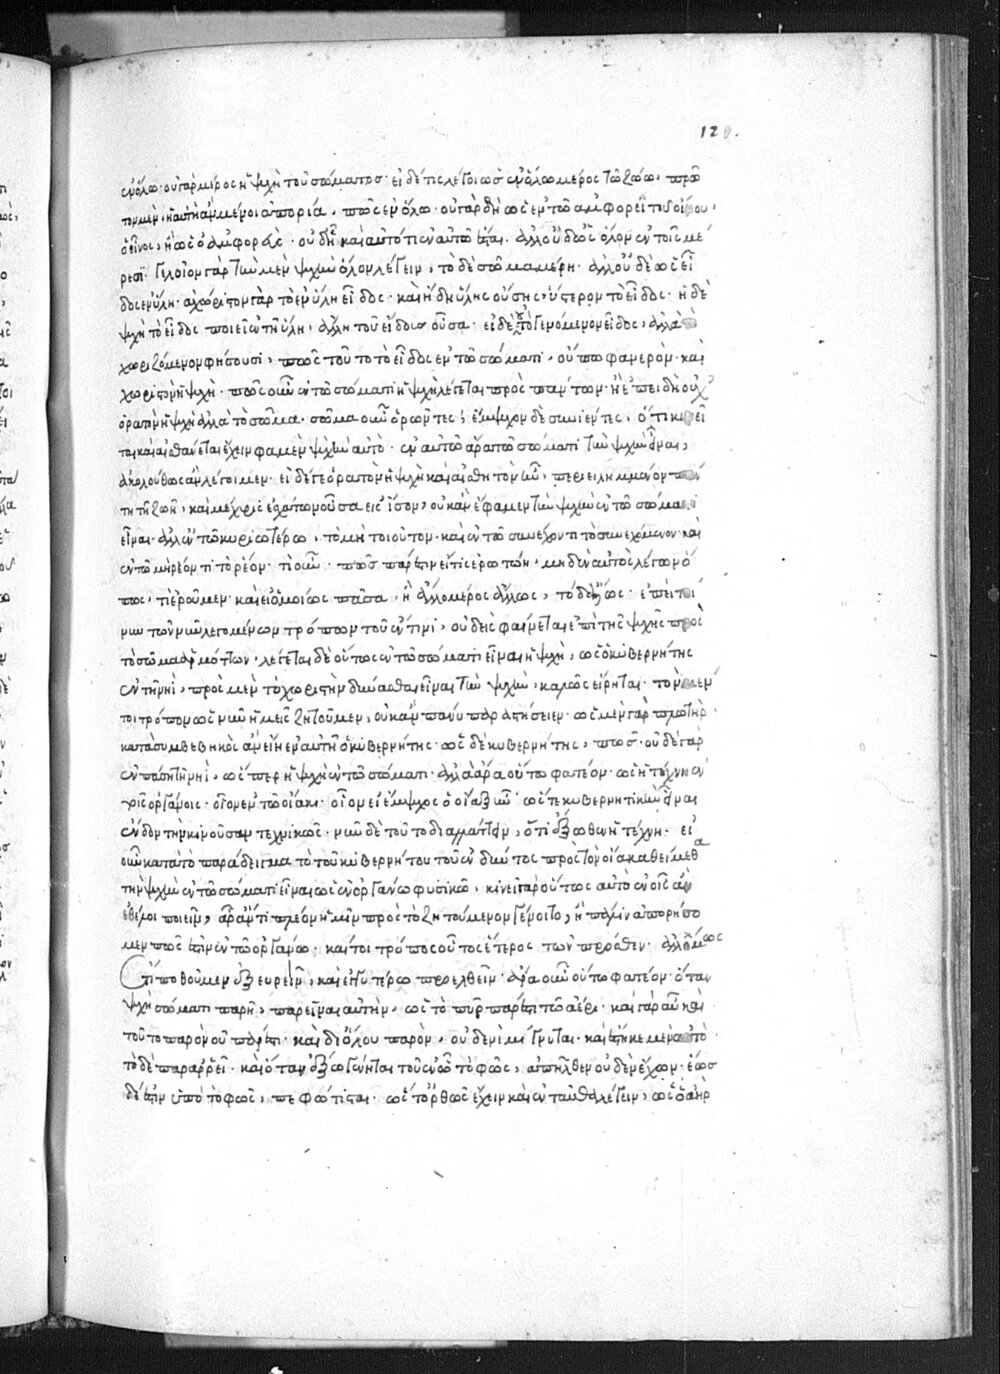 ἐν ὅλω· οὐ γὰρ μέρος ἡ ψυχὴ τοῦ σώματος· εἰ δέ τις λέγοι ὡς ἐν ὅλω μέρος τῶ ζώω, πρῶ
τον μὲν, ἡ αὐτὴ ἂν μένοι ἀπορία, πῶς ἐν ὅλω· οὐ γὰρ δὴ ὡς ἐν τῶ ἀμφορεῖ τοῦ οἴνου,
ὁ οἶνος, ἢ ὡς ὁ ἀμφορεὺς· οὐδ' ἧ καὶ αὐτό τι ἐν αὐτῶ ἔσται. ἀλλ' οὐδ' ὡς ὅλον ἐν τοῖς μέ
ρεσι· γελοῖον γὰρ τὴν μὲν ψυχὴν ὅλον λέγειν, τὸ δὲ σῶμα μέρη· ἀλλ' οὐδὲ ὡς εἶ
δος ἐν ὕλη· ἀχώριστον γὰρ τὸ ἐν ὕλη εἶδος· καὶ ἤδη ὕλης οὔσης, ὕστερον τὸ εἶδος· ἡ δὲ
ψυχὴ τὸ εἶδος ποιεῖ ἐν τῆ ὕλη, ἄλλη τοῦ εἴδους οὖσα· εἰ δὲ οὐ τὸ γενόμενον εἶδος, ἀλλὰ
χωριζόμενον φήσουσι, πῶς τοῦτο τὸ εἶδος ἐν τῶ σώματι, οὔπω φανερὸν· καὶ
χωριστὸν ἡ ψυχὴ· πῶς οὖν ἐν τῶ σώματι ἡ ψυχὴ λέγεται πρὸς πάντων· ἢ ἐπειδὴ οὐχ'
ὁρατὸν ἡ ψυχὴ ἀλλὰ τὸ σῶμα· σῶμα οὖν ὁρῶντες, ἔμψυχον δὲ συνιέντες, ὅτι κινεῖ
ται καὶ αἰσθάνεται ἔχειν φαμὲν ψυχὴν αὐτὸ· ἐν αὐτῶ ἄρα τῶ σώματι τὴν ψυχὴν εἶναι,
ἀκολούθως ἂν λέγοιμεν· εἰ δέ γε ὁρατὸν ἡ ψυχὴ καὶ αἰσθητὸν ἦν, περιειλημμένον πάν
τη τῆ ζωῆ, καὶ μέχρις ἐσχάτων οὖσα εἰς ἴσον, οὐκ ἂν ἔφαμεν τὴν ψυχὴν ἐν τῶ σώματι
εἶναι· ἀλλ' ἐν τῶ κυριωτέρω, τὸ μὴ τοιοῦτον· καὶ ἐν τῶ συνέχοντι τὸ συνεχόμενον· καὶ
ἐν τῶ μὴ ῥέοντι τὸ ῥέον· τί οὖν· πῶς πάρεστιν εἴ τις ἐρωτώη, μηδὲν αὐτὸς λέγων ὅ
πως, τί ἐροῦμεν· καὶ εἰ ὁμοίως πᾶσα, ἢ ἄλλο μέρος ἄλλως, τὸ δ' ἄλλως· ἐπεὶ τοί
νυν τῶν νῦν λεγομένων τρόπων τοῦ ἔν τινι, οὐδεὶς φαίνεται ἐπὶ τῆς ψυχῆς πρὸς
τὸ σῶμα ἁρμόττων, λέγεται δὲ οὕτως ἐν τῶ σώματι εἶναι ἡ ψυχὴ, ὡς ὁ κυβερνήτης
ἐν τῆ νηῒ, πρὸς μὲν τὸ χωριστὴν δύνασθαι εἶναι τὴν ψυχὴν, καλῶς εἴρηται· τὸν μέν
τοι τρόπον ὡς νῦν ἡμεῖς ζητοῦμεν, οὐκ ἂν πάνυ παραστήσειεν· ὡς μὲν γὰρ πλωτὴρ·
κατὰ συμβεβηκὸς ἂν εἴη ἐν αὐτῆ ὁ κυβερνήτης· ὡς δὲ κυβερνήτης, πῶς· οὐδὲ γὰρ
ἐν πάση τῆ νηῒ, ὥσπερ ἡ ψυχὴ ἐν τῶ σώματι· ἀλλὰ ἆρα οὕτω φατέον· ὡς ἡ τέχνη ἐν
τοῖς ὀργάνοις· οἷον ἐν τῶ οἴακι· οἷον εἰ ἔμψυχος ὁ οἴαξ ἦν· ὥστε κυβερνητικὴν εἶναι
ἔνδον τὴν κινοῦσαν τεχνικῶς· νῦν δὲ τοῦτο διαλλάττειν, ὅτι ἔξωθεν ἡ τέχνη· εἰ
οὖν κατὰ τὸ παράδειγμα τὸ τοῦ κυβερνήτου τοῦ ἐνδύντος πρὸς τὸν οἴακα θείμεθα
τὴν ψυχὴν ἐν τῶ σώματι εἶναι ὡς ἐν ὀργάνω φυσικῶ, κινεῖ γὰρ οὕτως αὐτὸ ἐν οἷς ἂν
ἐθέλοι ποιεῖν, ἆρ' ἄν τι πλέον ἡμῖν πρὸς τὸ ζητούμενον γένοιτο, ἢ πάλιν ἀπορήσο
μεν πῶς ἐστὶν ἐν τῶ ὀργάνω· καίτοι τρόπος οὗτος ἕτερος τῶν πρόσθεν· ἀλλ' ὅμως
ἔτι ποθοῦμεν ἐξευρεῖν, καὶ ἐγγυτέρω προσελθεῖν· ἆρα οὖν οὕτω φατέον· ὅταν
ψυχὴ σώματι παρῆ, παρεῖναι αὐτὴν, ὡς τὸ πῦρ πάρεστι τῶ ἀέρι· καὶ γὰρ αὖ καὶ
τοῦτο παρὸν οὐ πάρεστι· καὶ δι' ὅλου παρὸν, οὐδενὶ μίγνυται· καὶ ἕστηκε μὲν αὐτὸ·
τὸ δὲ παραρρεῖ· καὶ ὅταν ἔξω γένηται τοῦ ἐν ὧ τὸ φῶς, ἀπῆλθεν οὐδὲν ἔχων· ἕως
δέ ἐστιν ὑπὸ τὸ φῶς, πεφώτισται· ὥστ' ὀρθῶς ἔχειν καὶ ἐνταῦθα λέγειν, ὡς ὁ ἀὴρ